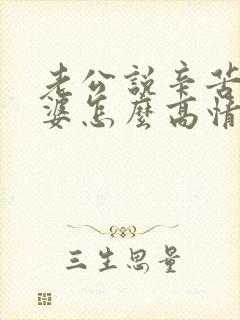 老公説辛苦
婆怎麼高情
三生思量